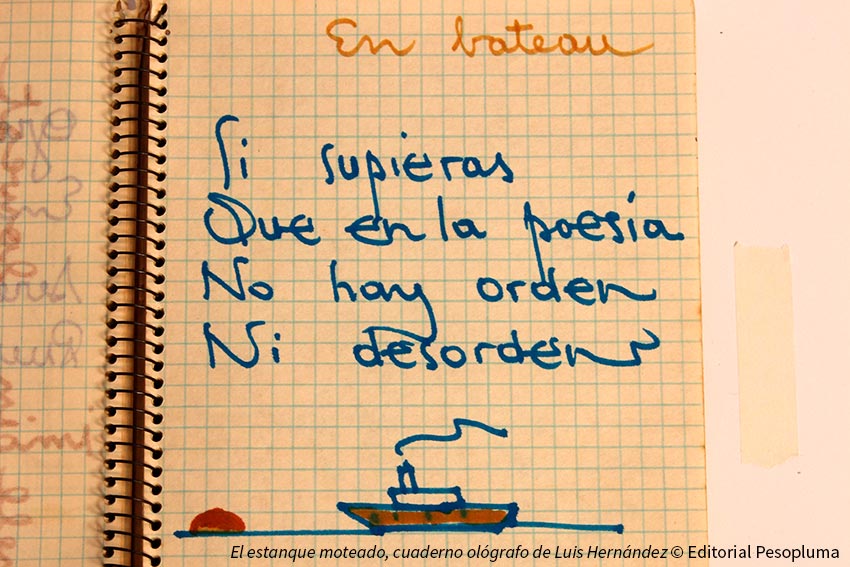 En bateau
Si supieras
Que en la poesía
No hay orden
Ni desorden
El estanque moteado, cuaderno ológrafo de Luis Hernández © Editorial Pesopluma